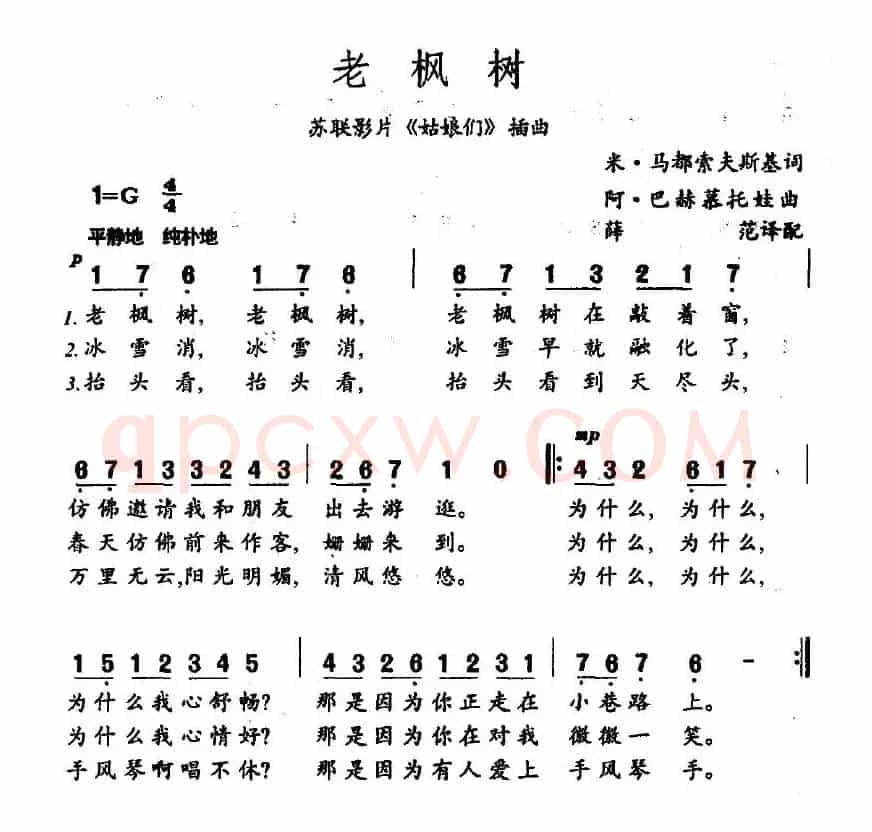 老枫树
苏联影片《姑娘们》插曲
米·马都索夫斯基词
1=G 4/4
阿·巴赫慕托娃曲
平静地 纯朴地
薛 范译配
p
1 7 6 1 7 6 | 6 7 1 3 2 1 7 |
1.老枫树, 老枫树, 老枫树在敲着窗,
2.冰雪消, 冰雪消, 冰雪早就融化了,
3.抬头看, 抬头看, 抬头看到天尽头,
qpcxw.COM
mp
6 7 1 3 3 2 4 3 | 2 6 7 1 0 |: 4 3 2 6 1 7 |
仿佛邀请我和朋友 出去游逛。 为什么, 为什么,
春天仿佛前来作客, 姗姗来到。 为什么, 为什么,
万里无云,阳光明媚, 清风悠悠。 为什么, 为什么,
1 5 1 2 3 4 5 | 4 3 2 6 1 2 3 1 | 7 6 7 6 - :|
为什么我心舒畅? 那是因为你正走在 小巷路上。
为什么我心情好? 那是因为你在对我 微微一笑。
手风琴啊唱不休? 那是因为有人爱上 手风琴手。